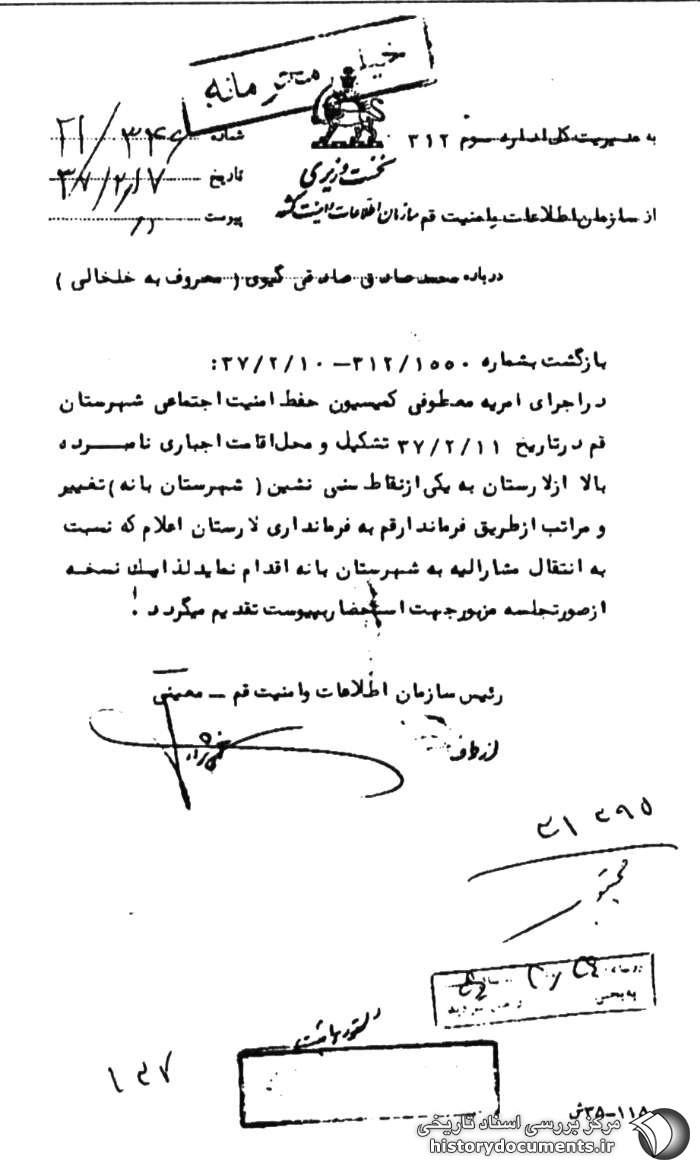 خیلی محرمانه
به مدیریت کل اداره سوم ۳۱۲
شماره
۲۱/
نخست وزیری
تاریخ ۳۷/۲/۱۷
از سازمان اطلاعات و امنیت قم
سازمان اطلاعات و امنیت کشور
پیوست
درباره محمدصادق صادقی گیوی ( معروف به خلخالی )
بازگشت بشماره ۳۱۲/۱۵۵۰ – ۳۷/۲/۱۰:
در اجرای امریه معطوفی کمیسیون حفظ امنیت اجتماعی شهرستان
قم در تاریخ ۳۷/۲/۱۱ تشکیل و محل اقامت اجباری نامبرده
بالا از لارستان به یکی از نقاط سنی نشین ( شهرستان بانه ) تغییر
و مراتب از طریق فرماندار قم به فرمانداری لارستان اعلام که نسبت
به انتقال مشارالیه به شهرستان بانه اقدام نماید لذا یک نسخه
از صورتجلسه مزبور جهت استحضار بپیوست تقدیم میگردد !
رئیس سازمان اطلاعات و امنیت قم – معینی
از طرف
۱۳۷
۳۵–۱۱۸ش
مرکز بررسی اسناد تاریخی
historydocuments.ir